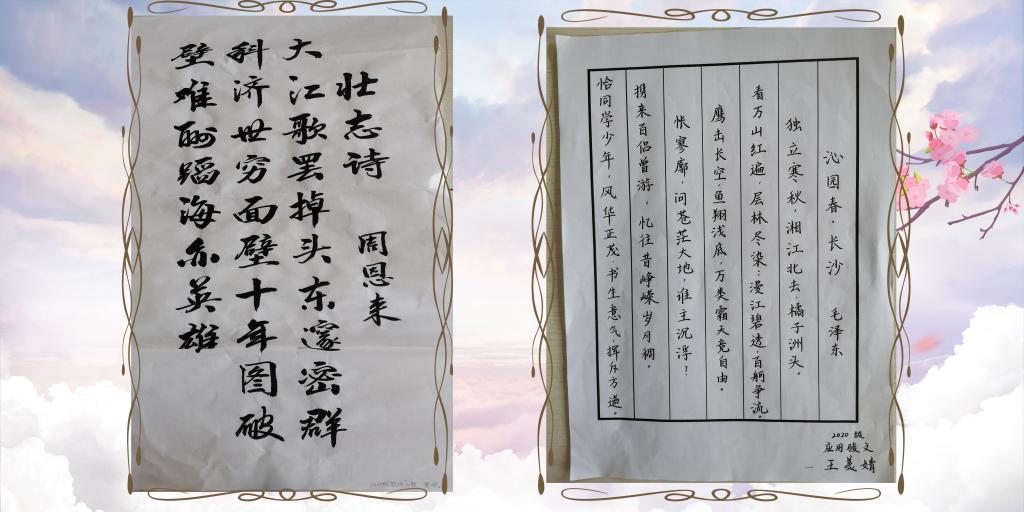 壮志诗 周恩来
大江歌罢掉头东邃密群
科济世穷面壁十年图破
壁难酬蹈海亦英雄
沁园春·长沙 毛泽东
独立寒秋,湘江北去,橘子洲头。
看万山红遍,层林尽染;漫江碧透,百舸争流。
鹰击长空,鱼翔浅底,万类霜天竞自由。
怅寥廓,问苍茫大地,谁主沉浮?
携来百侣曾游,忆往昔峥嵘岁月稠。
恰同学少年,风华正茂,书生意气,挥斥方遒。
2020级
应用
王美婧